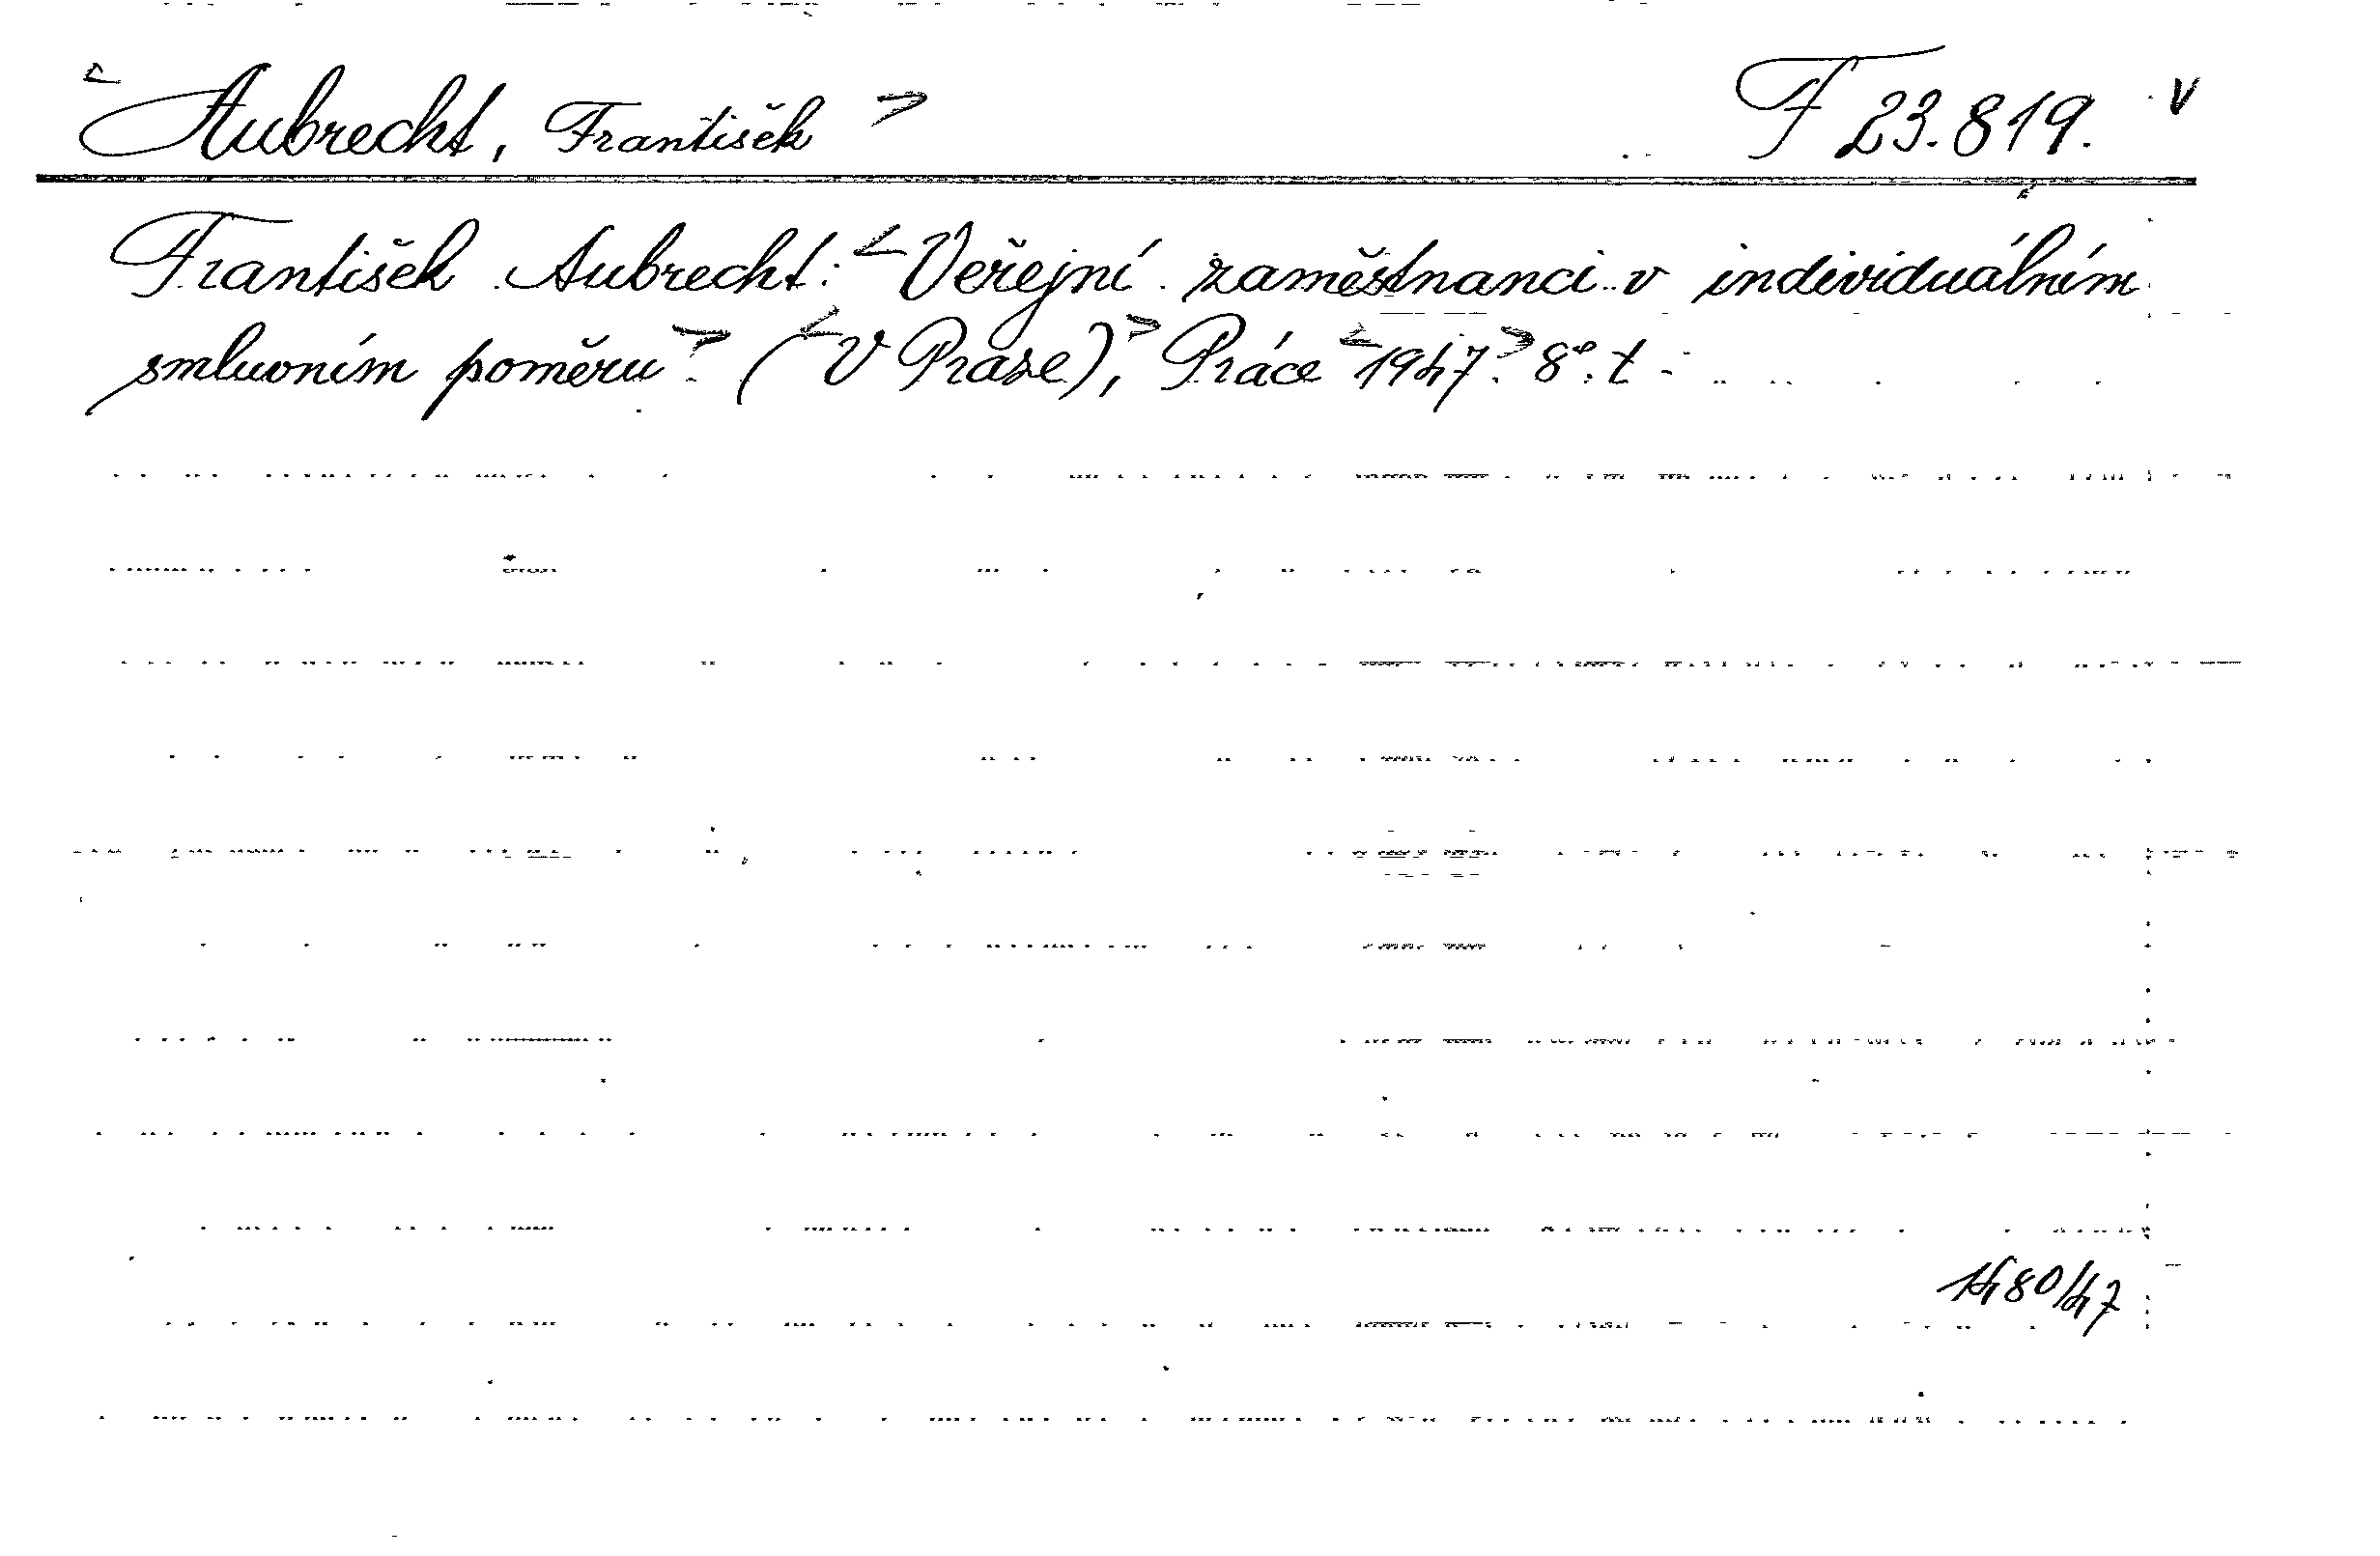 <Aubrecht, František> F 23.819. v
František Aubrecht: <Veřejní zaměstnanci v individuálním
smluvním poměru>. (<V Praze),> Práce <1947.> 8°. t -
1480/47